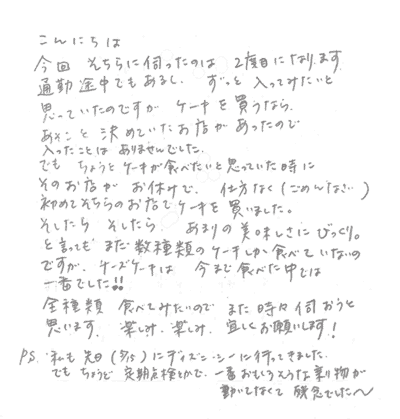 こんにちは
今回 そちらに伺ったのは 2度目になります
通勤途中でもあるし、ずっと入ってみたいと
思っていたのですが ケーキを買うなら
あそこと決めていたお店があったので
入ったことは ありませんでした。
でも ちょうどケーキが食べたいと思っていた時に
そのお店が お休みで、仕方なく(ごめんなさい)
初めてそちらのお店でケーキを買いました。
そしたら そしたら あまりの美味しさにびっくり。
と言っても まだ数種類のケーキしか食べていないの
ですが、チーズケーキは 今まで食べた中では
一番でした!!
全種類 食べてみたいので また時々伺おうと
思います。楽しみ、楽しみ、宜しくお願いします!
P.S. 私も先日()にディズニーシーに行ってきました。
でも ちょうど 定期点検とかで、一番おもしろそうな乗り物が
動いてなくて 残念でした〜